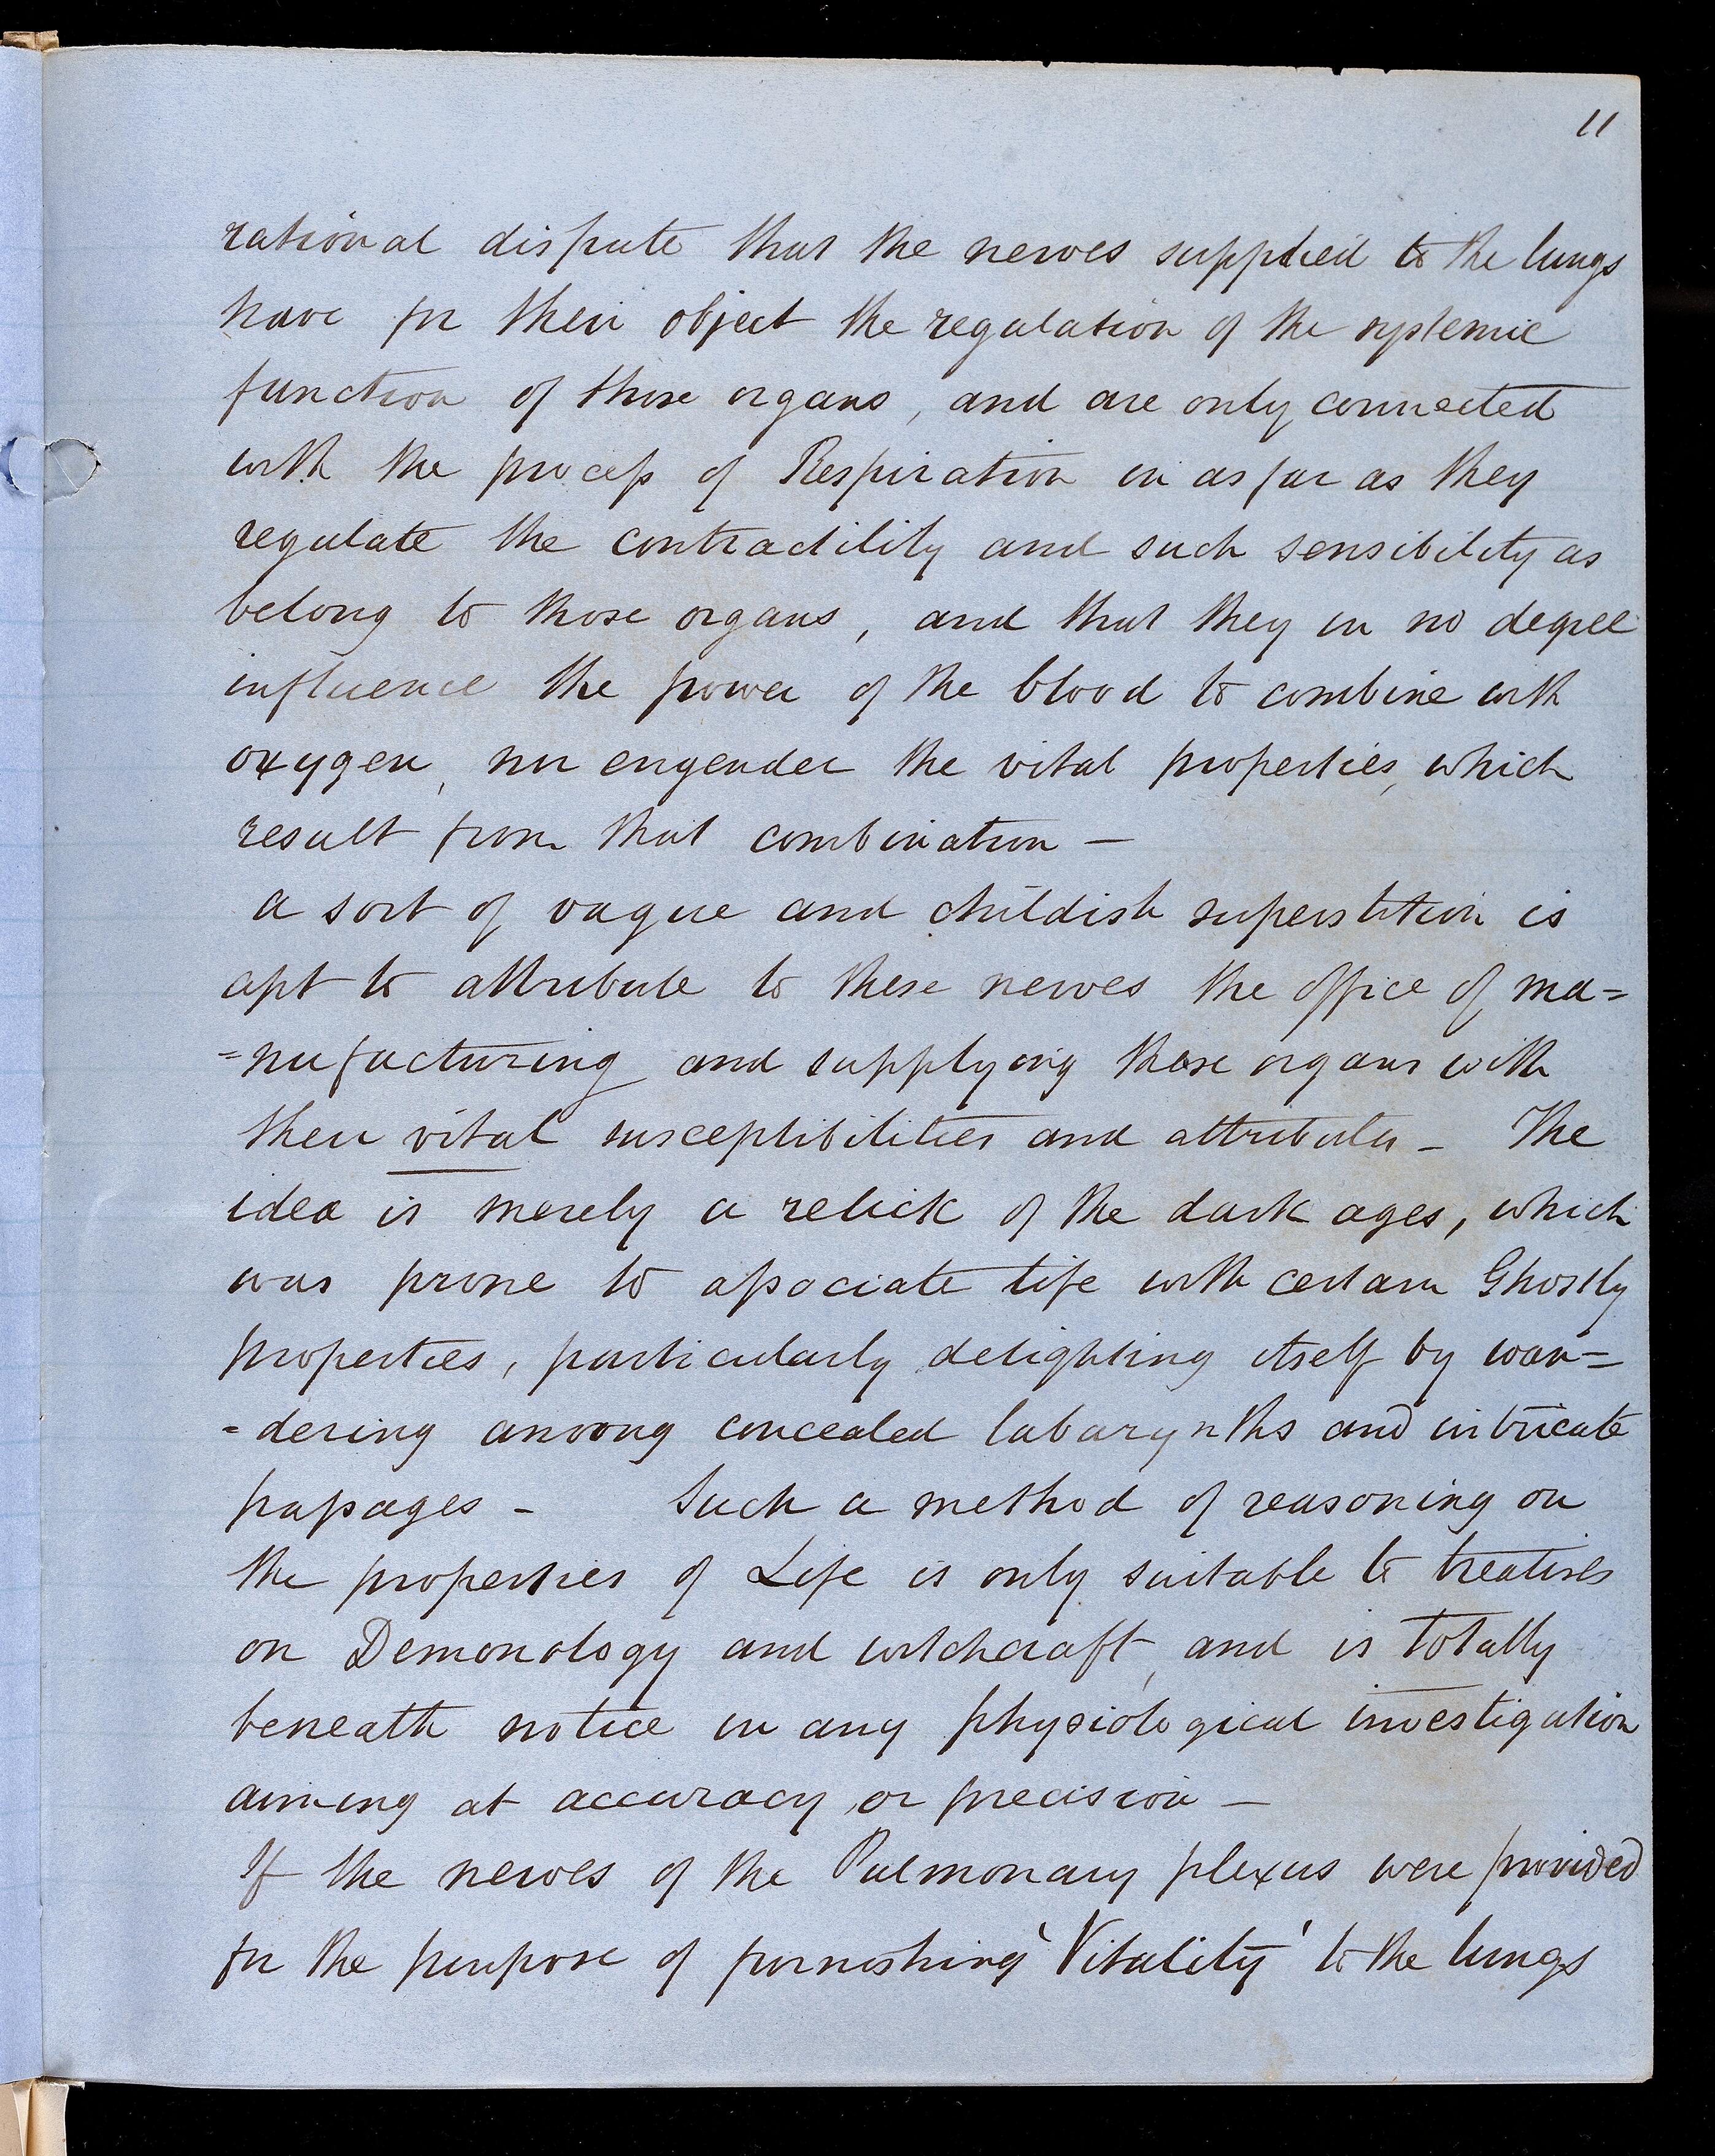 11
rational dispute that the nerves supplied to the lungs
have for their object the regulation of the systemic
function of those organs, and are only connected
with the process of Respiration in as far as they
regulate the contractility and such sensibility as
belong to those organs, and that they in no degree
influence the power of the blood to combine with
oxygen, nor engender the vital properties, which
result from that combination —
a sort of vague and childish superstition is
apt to attribute to these nerves the office of ma=
=nufacturing and supplying those organs with
their vital susceptibilities and attributes – The
idea is merely a relick of the dark ages, which
was prone to associate life with certain Ghostly
properties, particularly delighting itself by wan=
=dering among concealed labarynths and intricate
passages – Such a method of reasoning on
the properties of Life is only suitable to treatises
on Demonology and witchcraft, and is totally
beneath notice in any physiological investigation
aiming at accuracy or precision —
If the nerves of the Pulmonary plexus were provided
for the purpose of furnishing 'Vitality' to the lungs